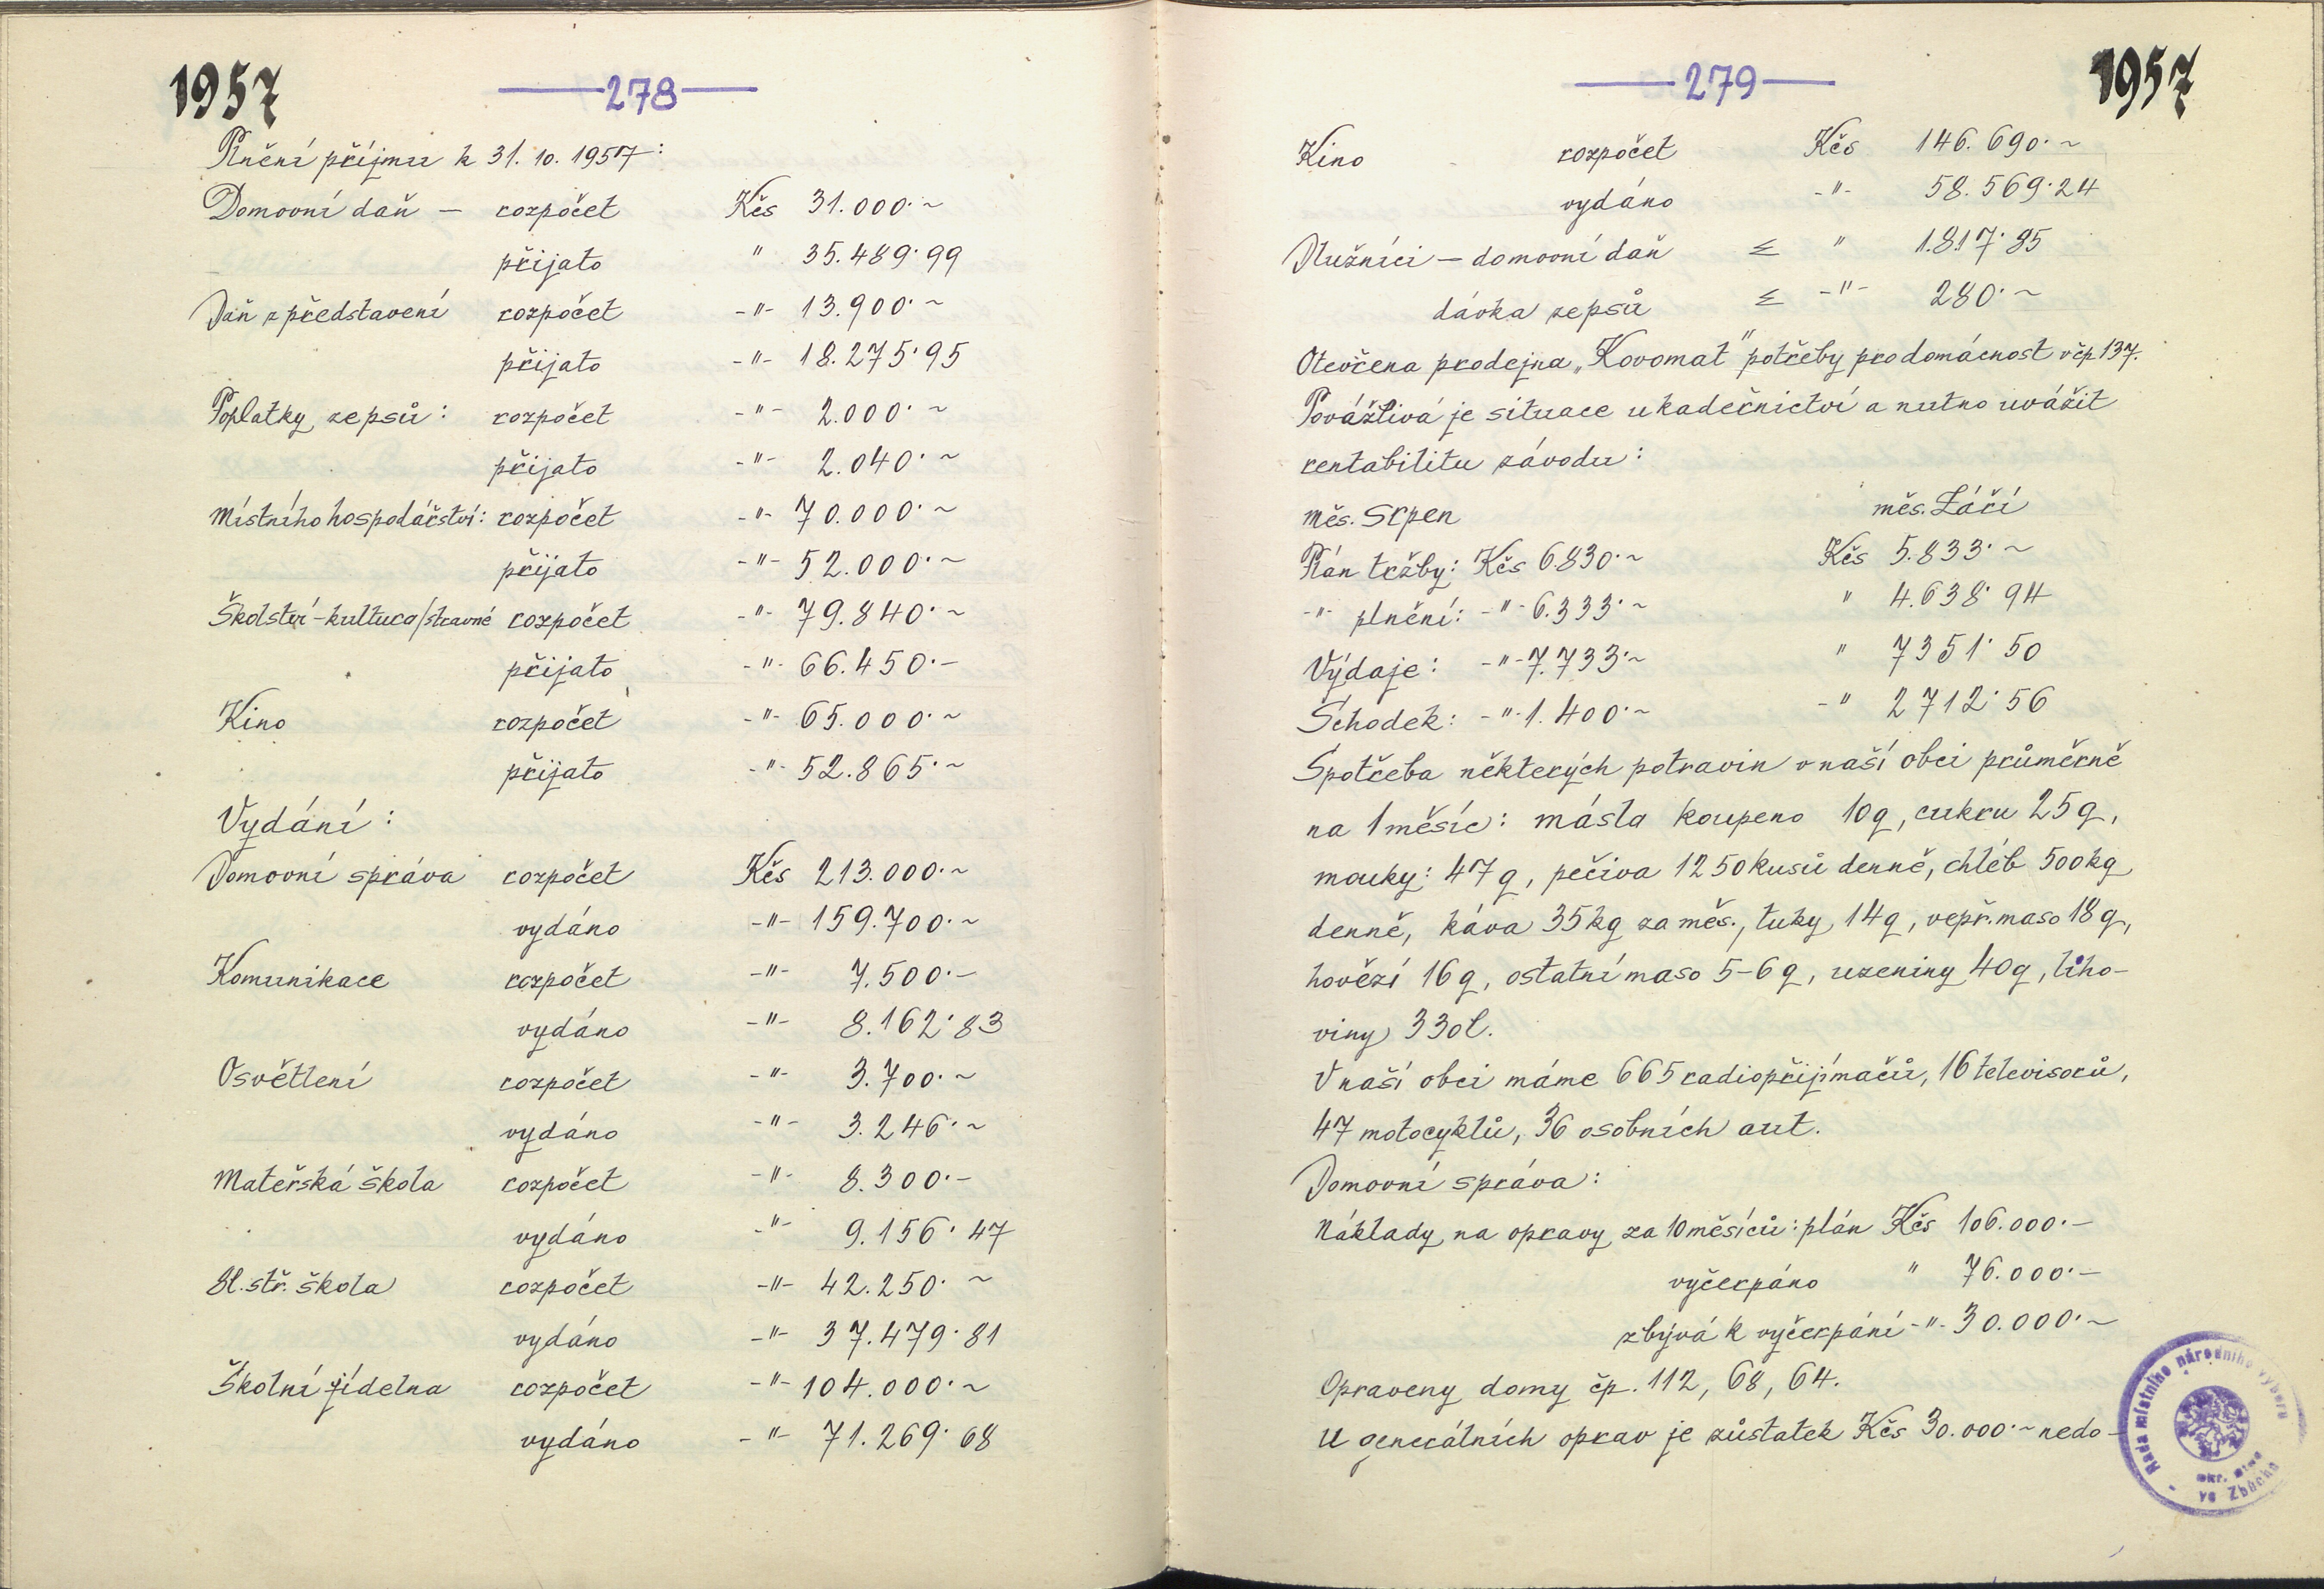 1957
278
Plnění příjmu k 31. 10. 1957:
Domovní daň – rozpočet Kčs 31.000·~
přijato " 35.489·99
Daň z představení rozpočet -"- 13.900·~
přijato -"- 18.275·95
Poplatky ze psů: rozpočet -"- 2.000·~
přijato -"- 2.040·~
Místního hospodářství: rozpočet -"- 70.000·~
přijato -"- 52.000·~
Školství-kultura/stravné rozpočet -"- 79.840·~
přijato -"- 66.450·-
Kino rozpočet -"- 65.000·~
přijato -"- 52.865·~
Vydání:
Domovní správa rozpočet Kčs 213.000·~
vydáno -"- 159.700·~
Komunikace rozpočet -"- 7.500·-
vydáno -"- 8.162·83
Osvětlení rozpočet -"- 3.700·~
vydáno -"- 3.246·~
Mateřská škola rozpočet -"- 8.300·-
vydáno -"- 9.156·47
8l. stř. škola rozpočet -"- 42.250·~
vydáno -"- 37.479·81
Školní jídelna rozpočet -"- 104.000·~
vydáno -"- 71.269·68
279
1957
Kino rozpočet Kčs 146.690·~
vydáno -"- 58.569·24
Dlužníci – domovní daň ≤ " 1.817·85
dávka ze psů ≤ -"- 280·~
Otevřena prodejna „Kovomat" potřeby pro domácnost v čp 137.
Povážlivá je situace u kadeřnictví a nutno uvážit
rentabilitu závodu:
měs. Srpen měs. Září
Plán tržby: Kčs 6.830·~ Kčs 5.833·~
-"- plnění: -"- 6.333·~ " 4.638·94
Výdaje: -"- 7.733·~ " 7351·50
Schodek: -"- 1.400·~ -" 2712·56
Spotřeba některých potravin v naší obci průměrně
na 1 měsíc: másla koupeno 10q, cukru 25q,
mouky: 47q, pečiva 1250 kusů denně, chléb 500kg
denně, káva 35kg za měs., tuky 14q, vepř. maso 18q,
hovězí 16q, ostatní maso 5-6q, uzeniny 40q, liho-
viny 330l.
V naší obci máme 665 radiopřijímačů, 16 televisorů,
47 motocyklů, 36 osobních aut.
Domovní správa:
Náklady na opravy za 10 měsíců: plán Kčs 106.000·-
vyčerpáno " 76.000·-
zbývá k vyčerpání -"- 30.000·~
Opraveny domy čp. 112, 68, 64.
U generálních oprav je zůstatek Kčs 30.000·~ nedo-
Rada místního národního výboru
okr.
ve Zbůchu